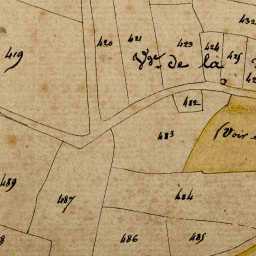 432
420 421 423 424 425
419
Vge de la
482
483
Voir
489
487
484
486 485